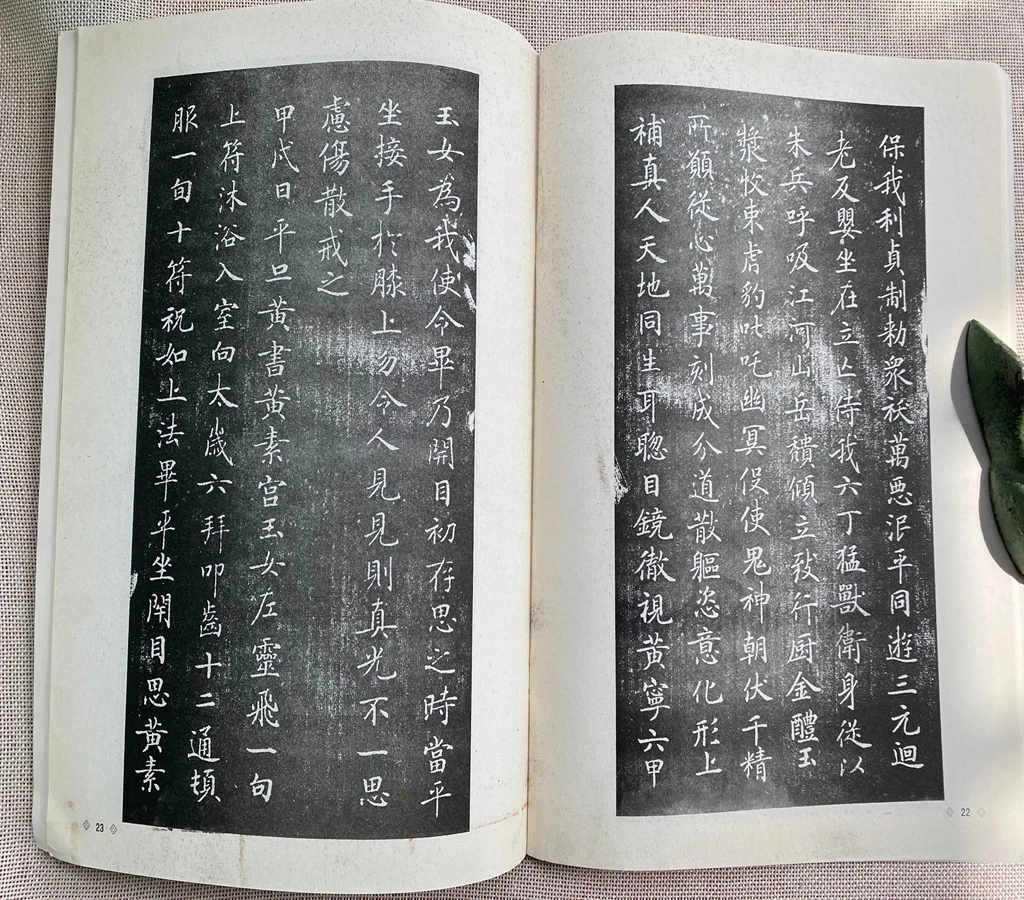 保我利貞制勑眾祅萬惡泯平同遊三元迴
老反嬰坐在立亡侍我六丁猛獸衛身從以
朱兵呼吸江河山岳穨傾立致行厨金醴玉
漿牧束虎豹叱吒幽冥役使鬼神朝伏千精
所願從心萬事刻成分道散軀恣意化形上
補真人天地同生耳聦目鏡徹視黃寧六甲
22
玉女為我使令畢乃開目初存思之時當平
坐接手於膝上勿令人見見則真光不一思
慮傷散戒之
甲戌日平旦黃書黃素宮玉女左靈飛一旬
上符沐浴入室向太歲六拜叩齒十二通頓
服一旬十符祝如上法畢平坐閇目思黃素
23